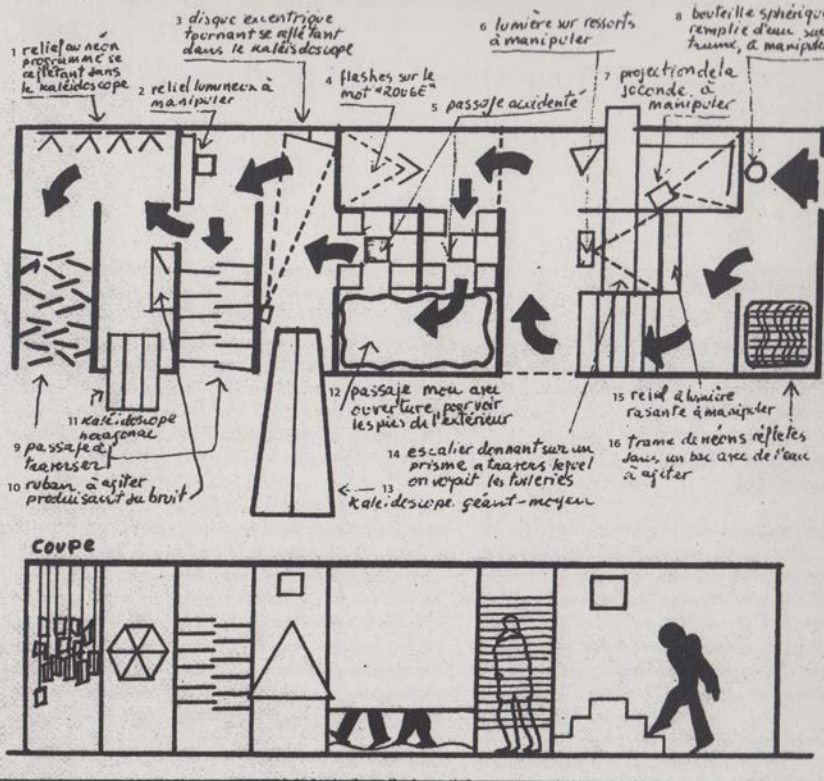 1 relief au néon
programmé se
reflétant dans
le kaléidoscope
2 relief lumineux à
manipuler
3 disque excentrique
tournant se reflétant
dans le kaléidoscope
4 flashes sur le
mot "ROUGE"
5 passage accidenté
6 lumière sur ressorts
à manipuler
7 projection de la
Joconde à
manipuler
8 bouteille sphérique
remplie d'eau sur
trame, à manipuler
9 passage à
traverser
10 ruban à agiter
produisant du bruit
11 kaléidoscope
hexagonal
12 passage mou avec
ouverture pour voir
les pieds de l'extérieur
13
kaléidoscope géant-moyen
14 escalier donnant sur un
prisme à travers lequel
on voyait les tuileries
15 relief à lumière
rasante à manipuler
16 trame de néons reflétés
dans un bac avec de l'eau
à agiter
COUPE